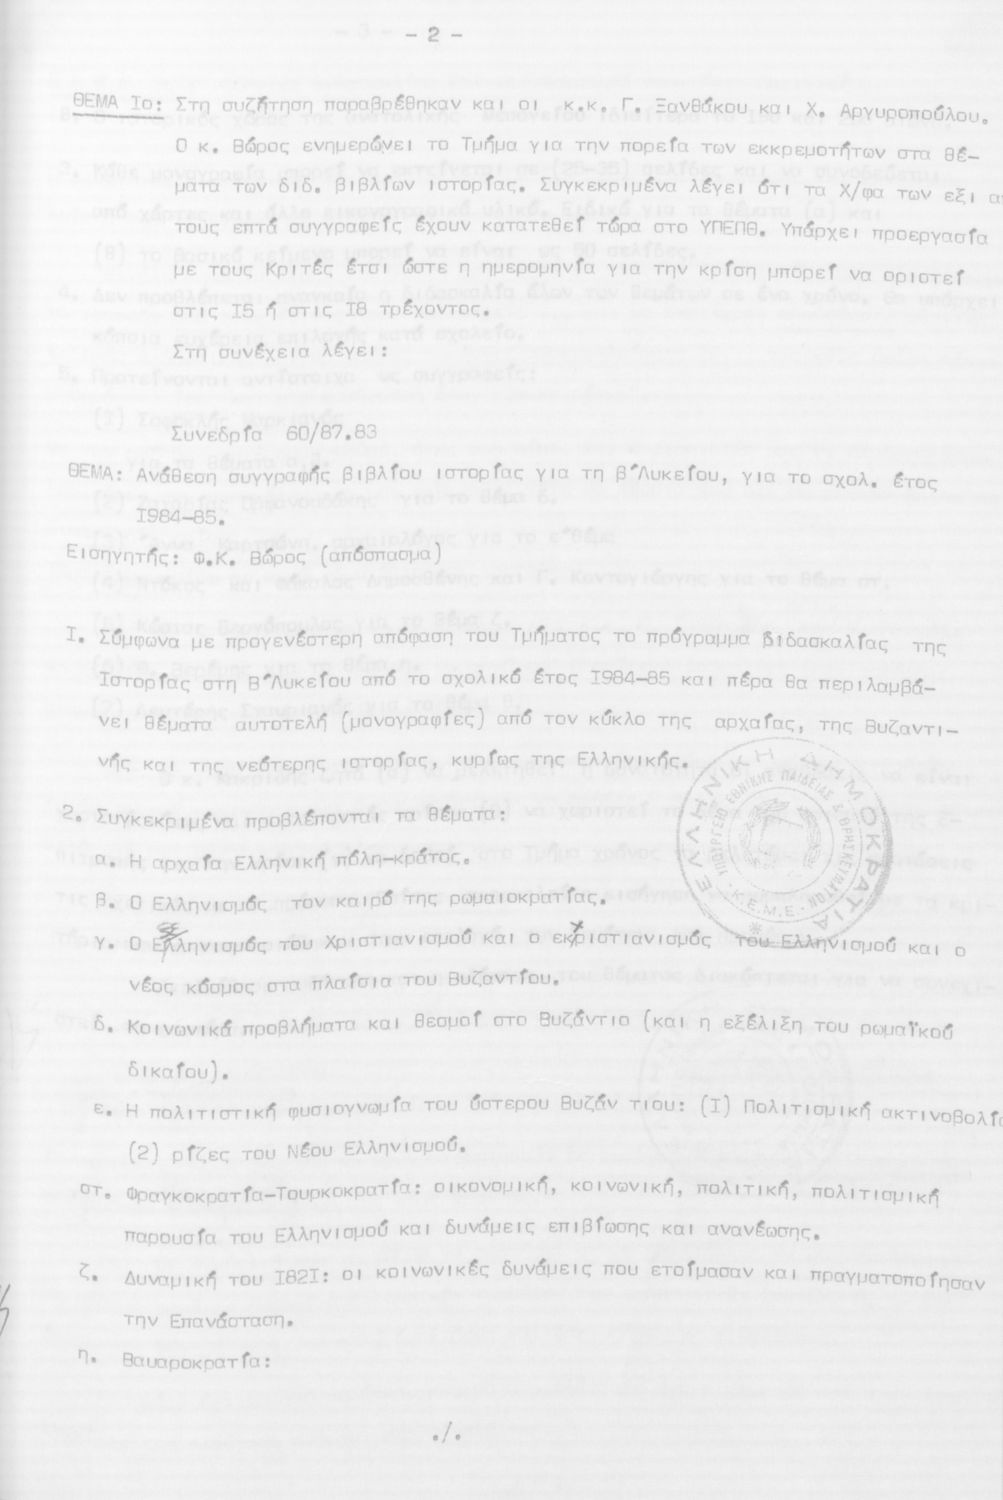 - 2 -
ΘΕΜΑ Ιο: Στη συζήτηση παραβρέθηκαν και οι κ.κ. Γ. Ξανθάκου και Χ. Αργυροπούλου.
Ο κ. Βώρος ενημερώνει το Τμήμα για την πορεία των εκκρεμοτήτων στα θέ-
ματα των διδ. βιβλίων ιστορίας. Συγκεκριμένα λέγει ότι τα Χ/φα των εξι α
τους επτά συγγραφείς έχουν κατατεθεί τώρα στο ΥΠΕΠΘ. Υπάρχει προεργασία
με τους Κριτές έτσι ώστε η ημερομηνία για την κρίση μπορεί να οριστεί
στις Ι5 ή στις Ι8 τρέχοντος.
Στη συνέχεια λέγει:
Συνεδρία 60/87.83
ΘΕΜΑ: Ανάθεση συγγραφής βιβλίου ιστορίας για τη β΄Λυκείου, για το σχολ. έτος
Ι984-85.
Εισηγητής: Φ.Κ. Βώρος (απόσπασμα)
Ι. Σύμφωνα με προγενέστερη απόφαση του Τμήματος το πρόγραμμα διδασκαλίας της
Ιστορίας στη Β΄Λυκείου από το σχολικό έτος Ι984-85 και πέρα θα περιλαμβά-
νει θέματα αυτοτελή (μονογραφίες) από τον κύκλο της αρχαίας, της Βυζαντι-
νής και της νεότερης ιστορίας, κυρίως της Ελληνικής.
2. Συγκεκριμένα προβλέπονται τα θέματα:
α. Η αρχαία Ελληνική πόλη-κράτος.
β. Ο Ελληνισμός τον καιρό της ρωμαιοκρατίας.
γ. Ο Ελληνισμός του Χριστιανισμού και ο εκχριστιανισμός του Ελληνισμού και ο
νέος κόσμος στα πλαίσια του Βυζαντίου.
δ. Κοινωνικά προβλήματα και θεσμοί στο Βυζάντιο (και η εξέλιξη του ρωμαϊκού
δικαίου).
ε. Η πολιτιστική φυσιογνωμία του ύστερου Βυζάν τιου: (Ι) Πολιτισμική ακτινοβολία
(2) ρίζες του Νέου Ελληνισμού.
στ. Φραγκοκρατία-Τουρκοκρατία: οικονομική, κοινωνική, πολιτική, πολιτισμική
παρουσία του Ελληνισμού και δυνάμεις επιβίωσης και ανανέωσης.
ζ. Δυναμική του Ι82Ι: οι κοινωνικές δυνάμεις που ετοίμασαν και πραγματοποίησαν
την Επανάσταση.
η. Βαυαροκρατία:
./.
ΕΛΛΗΝΙΚΗ ΔΗΜΟΚΡΑΤΙΑ
ΥΠΟΥΡΓΕΙΟ ΕΘΝΙΚΗΣ ΠΑΙΔΕΙΑΣ & ΘΡΗΣΚΕΥΜΑΤΩΝ
Κ.Ε.Μ.Ε.